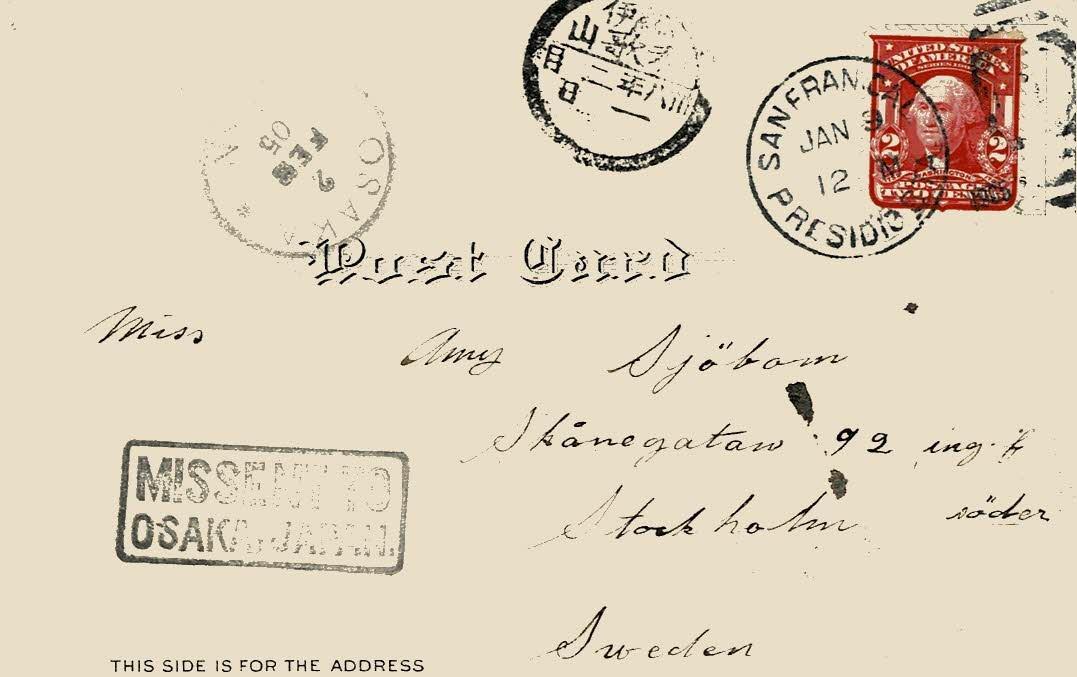 山歌
月二年八
日一
UNITED STATES
OF AMERICA
SERIES
2 2
WASHINGTON
POSTAGE
SAN FRAN. CAL.
JAN 9
12 M
PRESIDIO
OSAKA
2
FEB
05
Post Card
Miss Amy Sjöbom
Skånegatan 92 ing.
Stockholm söder
Sweden
MISSENT TO
OSAKA, JAPAN.
THIS SIDE IS FOR THE ADDRESS